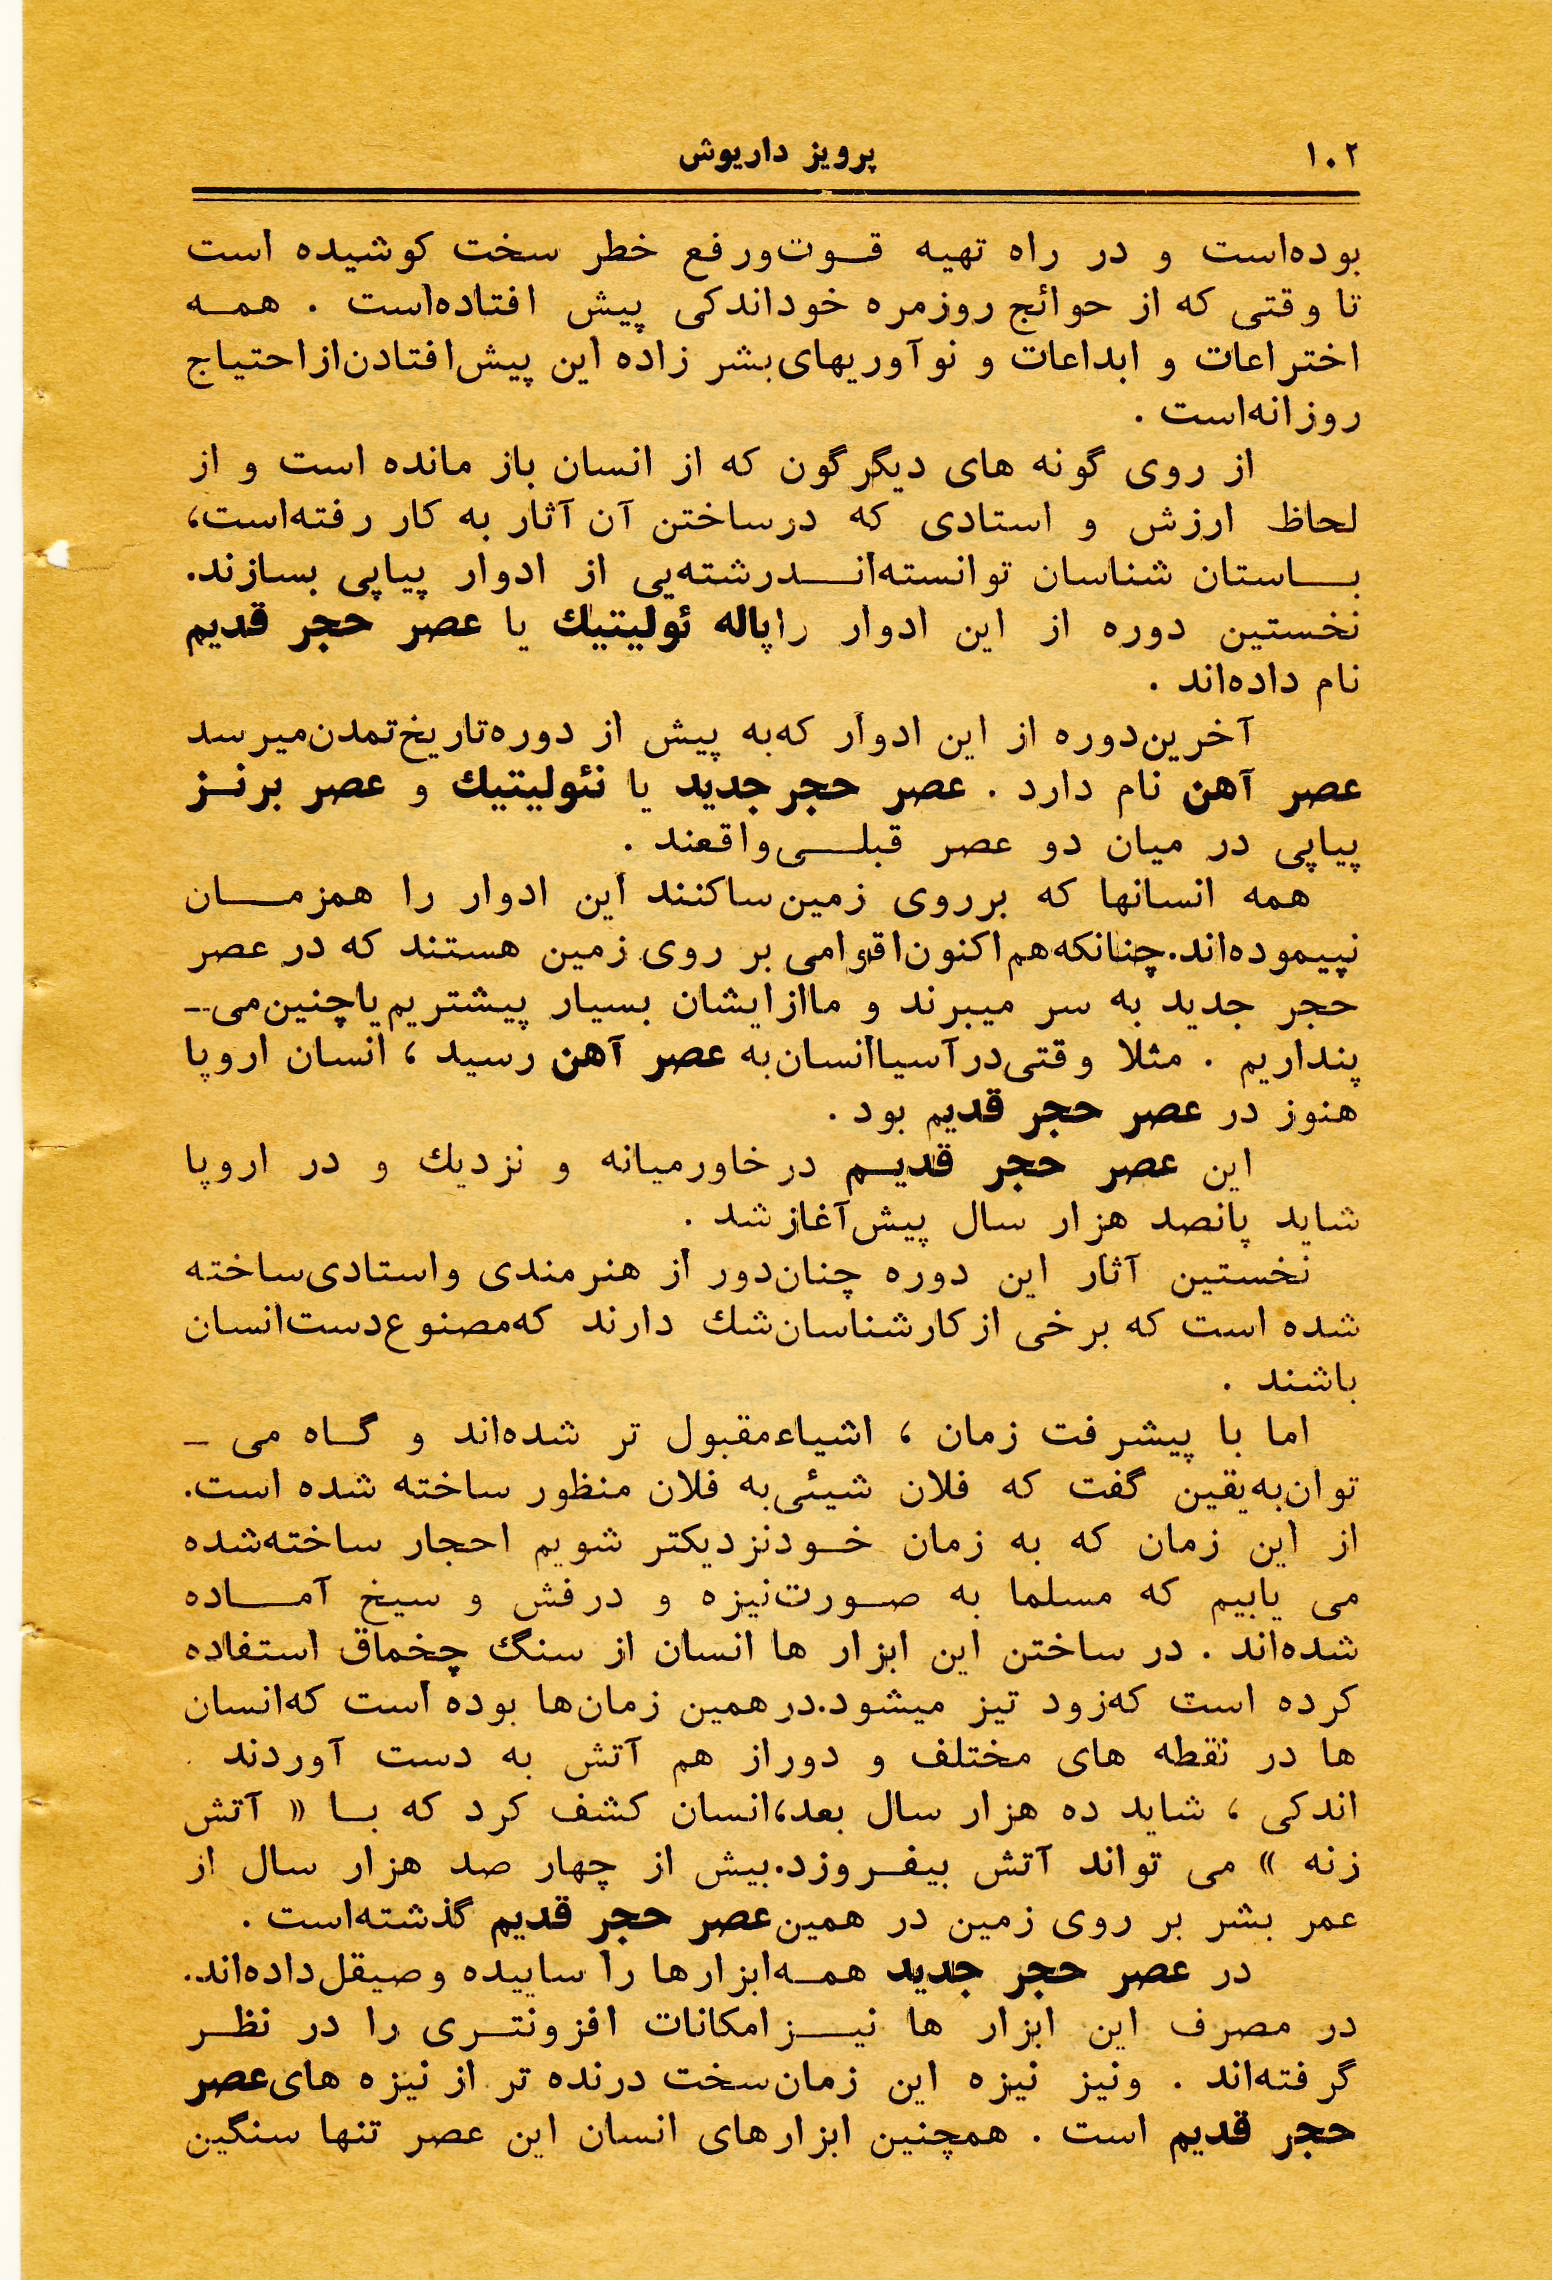 ۱۰۲ پرویز داریوش
بوده‌است و در راه تهیه قـوت‌ورفع خطر سخت کوشیده است
تا وقتی که از حوائج روزمره خوداندکی پیش افتاده‌است . همـه
اختراعات و ابداعات و نوآوریهای‌بشر زاده این پیش‌افتادن‌از احتیاج
روزانه‌است .
از روی گونه های دیگرگون که از انسان باز مانده است و از
لحاظ ارزش و استادی که درساختن آن آثار به کار رفته‌است،
بـاستان شناسان توانسته‌انـدرشته‌یی از ادوار پیاپی بسازند.
نخستین دوره از این ادوار راپاله ئولیتیك یا عصر حجر قدیم
نام داده‌اند .
آخرین‌دوره از این ادوار که‌به پیش از دوره‌تاریخ‌تمدن‌میرسد
عصر آهن نام دارد . عصر حجرجدید یا نئولیتیك و عصر برنـز
پیاپی در میان دو عصر قبلـی‌واقعند .
همه انسانها که برروی زمین‌ساکنند این ادوار را همزمـان
نپیموده‌اند.چنانکه‌هم‌اکنون‌اقوامی بر روی زمین هستند که در عصر
حجر جدید به سر میبرند و مااز‌ایشان بسیار پیشتریم‌یاچنین‌می‌ـ
پنداریم . مثلا وقتی‌در‌آسیا‌انسان‌به عصر آهن رسید ، انسان اروپا
هنوز در عصر حجر قدیم بود .
این عصر حجر قدیـم درخاورمیانه و نزدیك و در اروپا
شاید پانصد هزار سال پیش‌آغازشد .
نخستین آثار این دوره چنان‌دور از هنرمندی واستادی‌ساخته
شده است که برخی ازکارشناسان‌شك دارند که‌مصنوع‌دست‌انسان
باشند .
اما با پیشرفت زمان ، اشیاءمقبول تر شده‌اند و گـاه می ـ
توان‌به‌یقین گفت که فلان شیئی‌به فلان منظور ساخته شده است.
از این زمان که به زمان خـودنزدیکتر شویم احجار ساخته‌شده
می یابیم که مسلما به صـورت‌نیزه و درفش و سیخ آمـاده
شده‌اند . در ساختن این ابزار ها انسان از سنگ چخماق استفاده
کرده است که‌زود تیز میشود.درهمین زمان‌ها بوده است که‌انسان
ها در نقطه های مختلف و دوراز هم آتش به دست آوردند .
اندکی ، شاید ده هزار سال بعد،انسان کشف کرد که بـا « آتش
زنه » می تواند آتش بیفـروزد.بیش از چهار صد هزار سال از
عمر بشر بر روی زمین در همین‌عصر حجر قدیم گذشته‌است .
در عصر حجر جدید همـه‌ابزارها را ساییده وصیقل‌داده‌اند.
در مصرف این ابزار ها نیـزامکانات افزونتـری را در نظـر
گرفته‌اند . ونیز نیزه این زمان‌سخت درنده تر از نیزه های‌عصر
حجر قدیم است . همچنین ابزارهای انسان این عصر تنها سنگین